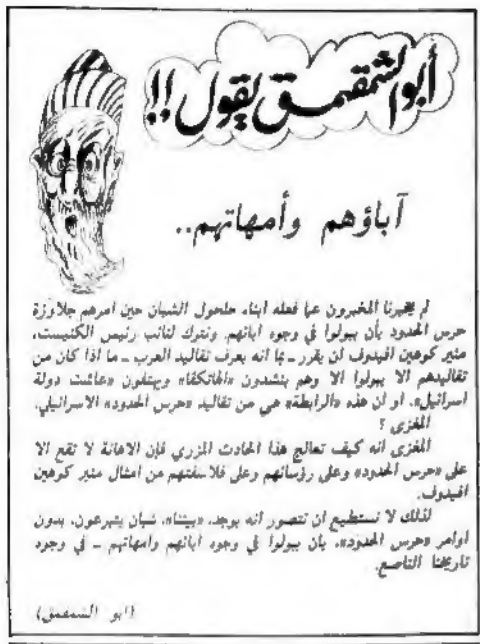 أبو الشمقمق يقول !!
آباؤهم وأمهاتهم..
لم يخبرنا المخبرون عما فعله ابناء حلحول الشبان حين امرهم جلاوزة
حرس الحدود بأن يبولوا في وجوه ابائهم. ونترك لنائب رئيس الكنيست،
مئير كوهين افيدوف ان يقرر ـ بما انه يعرف تقاليد العرب ـ ما اذا كان من
تقاليدهم الا يبولوا الا وهم ينشدون «الهاتكفا» ويهتفون «عاشت دولة
اسرائيل». او ان هذه «الرابطة» هي من تقاليد «حرس الحدود» الاسرائيلي.
المغزى ؟
المغزى انه كيف تعالج هذا الحادث المزري فإن الاهانة لا تقع الا
على «حرس الحدود» وعلى رؤسائهم وعلى فلاسفتهم من امثال مئير كوهين
افيدوف.
لذلك لا نستطيع ان نتصور انه يوجد، «بيننا»، شبان يتبرعون، بدون
اوامر «حرس الحدود»، بأن يبولوا في وجوه ابائهم وامهاتهم ـ في وجوه
تاريخنا الناصع.
(ابو الشمقمق)